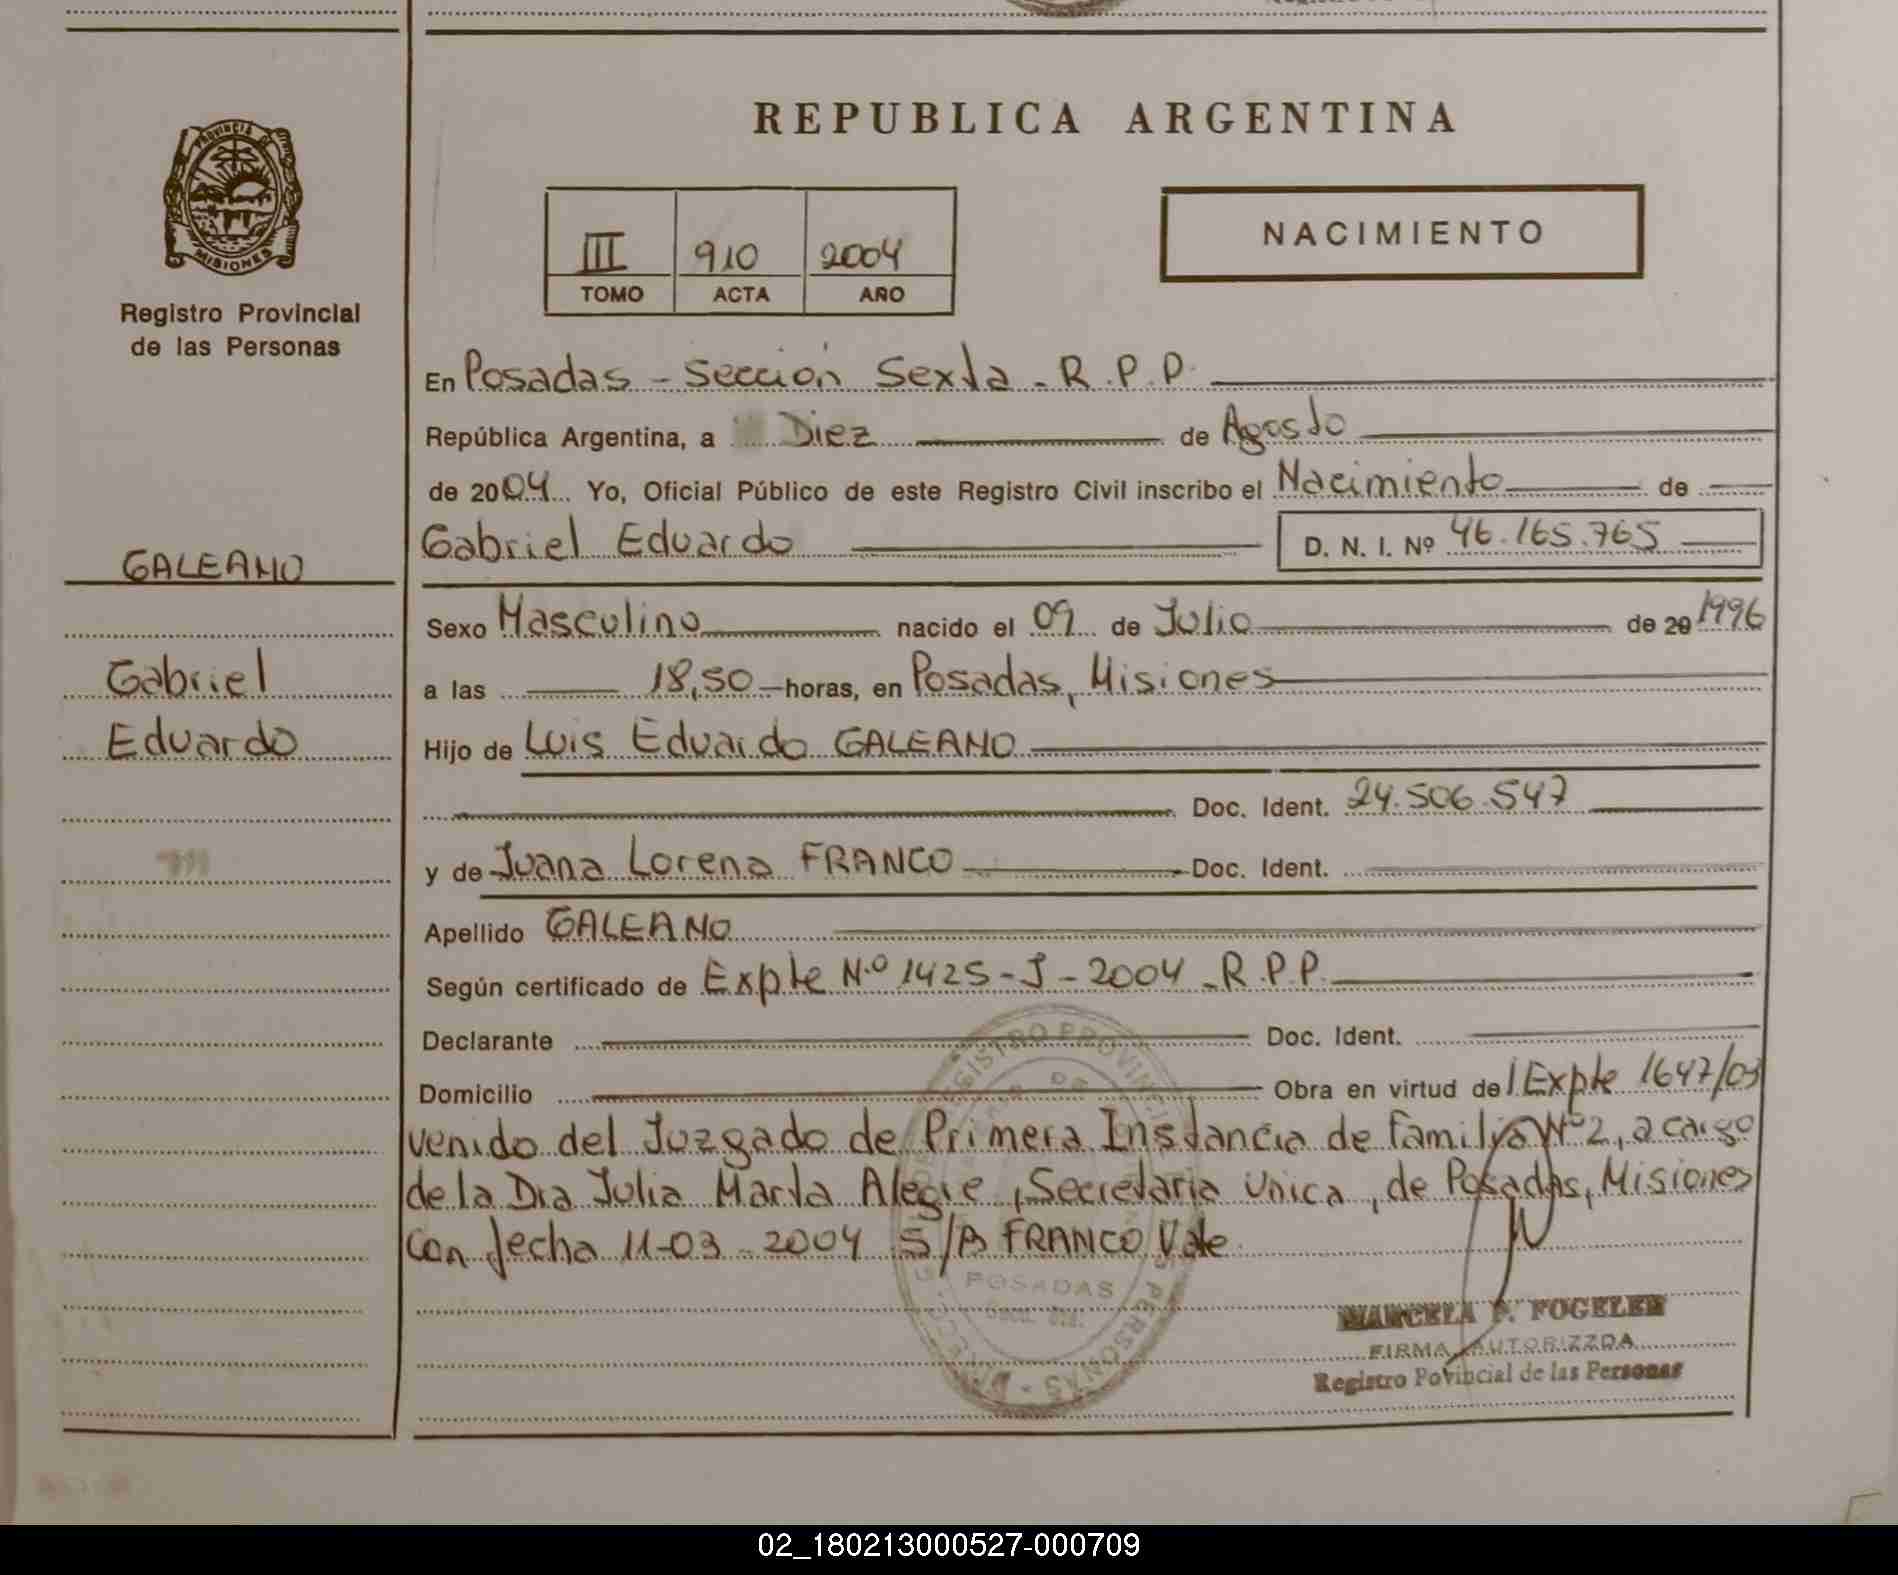 REPUBLICA ARGENTINA
PROVINCIA DE
MISIONES
Registro Provincial
de las Personas
III 910 2004
TOMO ACTA AÑO
NACIMIENTO
En Posadas - Sección Sexta - R.P.P.
República Argentina, a Diez de Agosto
de 2004 Yo, Oficial Público de este Registro Civil inscribo el Nacimiento de
Gabriel Eduardo D. N. I. Nº 46.165.765
GALEANO
Gabriel
Eduardo
Sexo Masculino nacido el 09 de Julio de 20 1996
a las 18,50 horas, en Posadas, Misiones
Hijo de Luis Eduardo GALEANO
Doc. Ident. 24.506.547
y de Juana Lorena FRANCO Doc. Ident.
Apellido GALEANO
Según certificado de Expte N.º 1425-J-2004 - R.P.P.
Declarante Doc. Ident.
Domicilio Obra en virtud del Expte 1647/03
venido del Juzgado de Primera Instancia de Familia Nº 2, a cargo
de la Dra Julia Marta Alegre, Secretaria Unica, de Posadas, Misiones
con fecha 11-03-2004 S/B FRANCO Vale
REGISTRO PROVINCIAL DE LAS PERSONAS
POSADAS
MARCELA F. FOGELER
FIRMA AUTORIZZDA
Registro Povincial de las Personas
02_180213000527-000709